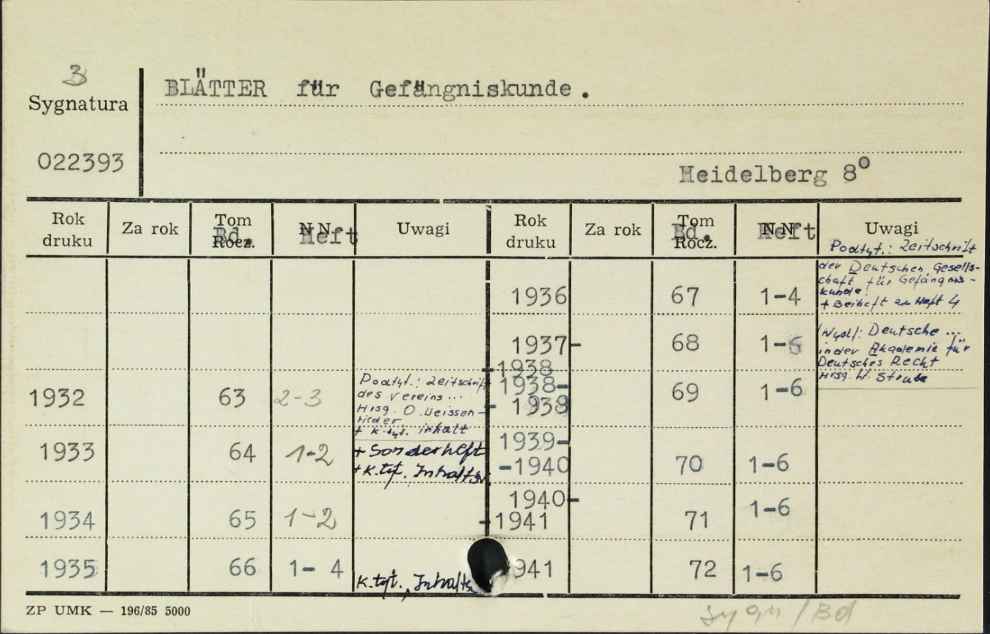 3
Sygnatura
022393
BLÄTTER für Gefängniskunde.
Heidelberg 8º
Rok druku Za rok Tom Rocz. Bd. N N Heft Uwagi Rok druku Za rok Tom Rocz. Bd. N N Heft Uwagi
1936 67 1-4 Podtyt.: Zeitschrift
der Deutschen Gesells-
chaft für Gefängnis-
kunde
+ Beiheft zu Heft 4
1937- 68 1-6 Wyd.: Deutsche ...
in der Akademie für
Deutsches Recht
Hrsg. W. Strube
-1938
1932 63 2-3 Podtyt.: Zeitschrift
des Vereins...
Hrsg. O. Weissen-
rieder
+ k. tyt. inhalt
1938-
- 1939 69 1-6
1933 64 1-2 + Sonderheft
+ k. tyt. Inhaltsv.
1939-
-1940 70 1-6
1934 65 1-2
1940-
-1941 71 1-6
1935 66 1- 4 k. tyt., Inhalts
941 72 1-6
ZP UMK — 196/85 5000
sygn/Bd